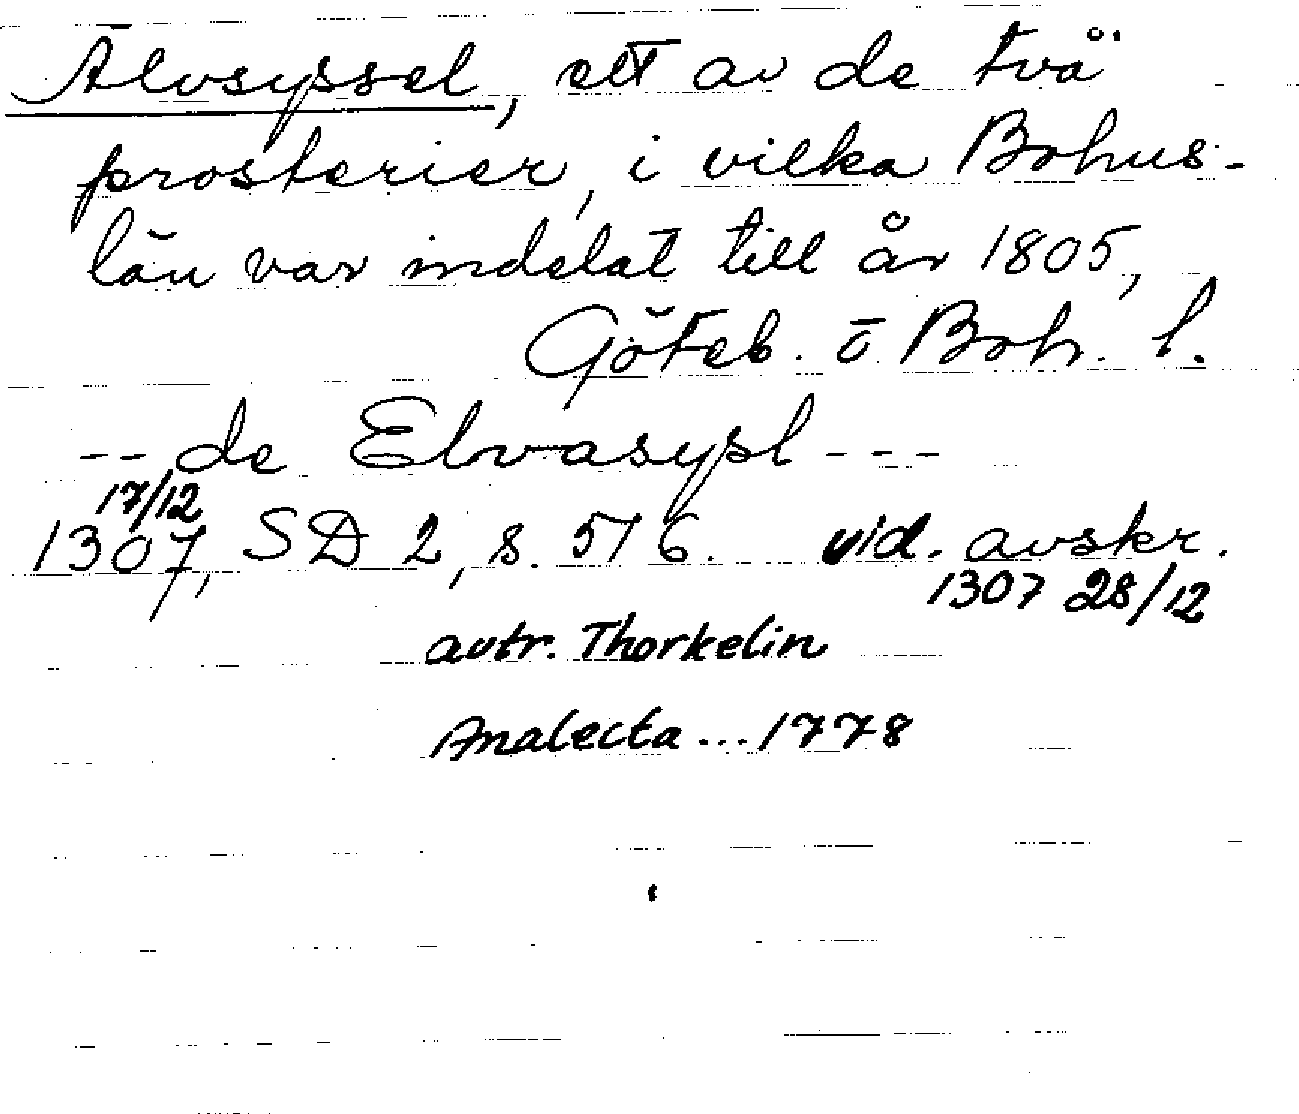 Älvsyssel, ett av de två
prosterier, i vilka Bohus-
län var indelat till år 1805,
Göteb. o. Boh. l.
-- de Elvasysl ---
17/12
1307, SD 2, s. 576. vid. avskr.
1307 28/12
avtr. Thorkelin
Analecta ... 1778